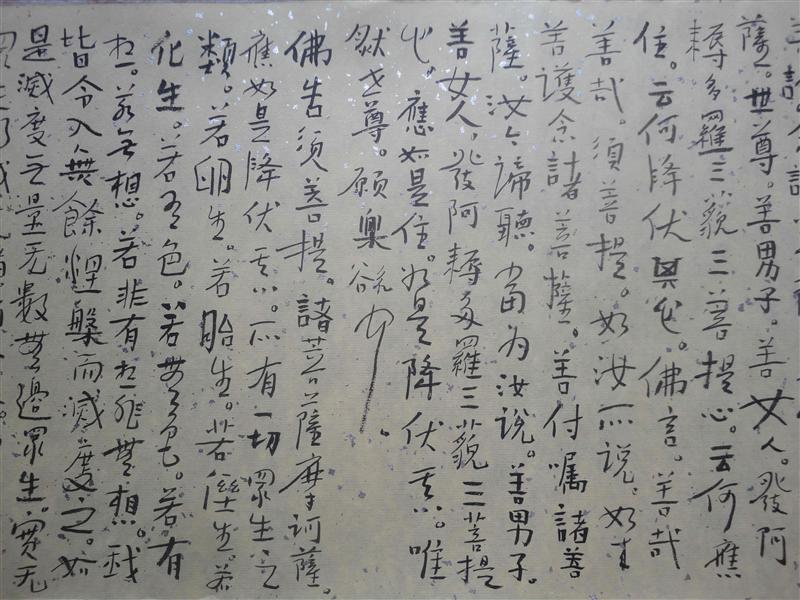 薩。世尊。善男子。善女人。發阿
耨多羅三藐三菩提心。云何應
住。云何降伏其心。佛言。善哉
善哉。須菩提。如汝所說。如来
善護念諸菩薩。善付嘱諸善
薩。汝今諦聽。當为汝说。善男子。
善女人。發阿耨多羅三藐三菩提
心。應如是住。如是降伏其心。唯
然世尊。願樂欲聞。
佛告須菩提。諸菩薩摩訶薩。
應如是降伏其心。所有一切眾生之
類。若卵生。若胎生。若濕生。若
化生。若有色。若無色。若有
想。若无想。若非有想非無想。我
皆令入無餘涅槃而滅度之。如
是滅度无量无數無邊眾生。實无